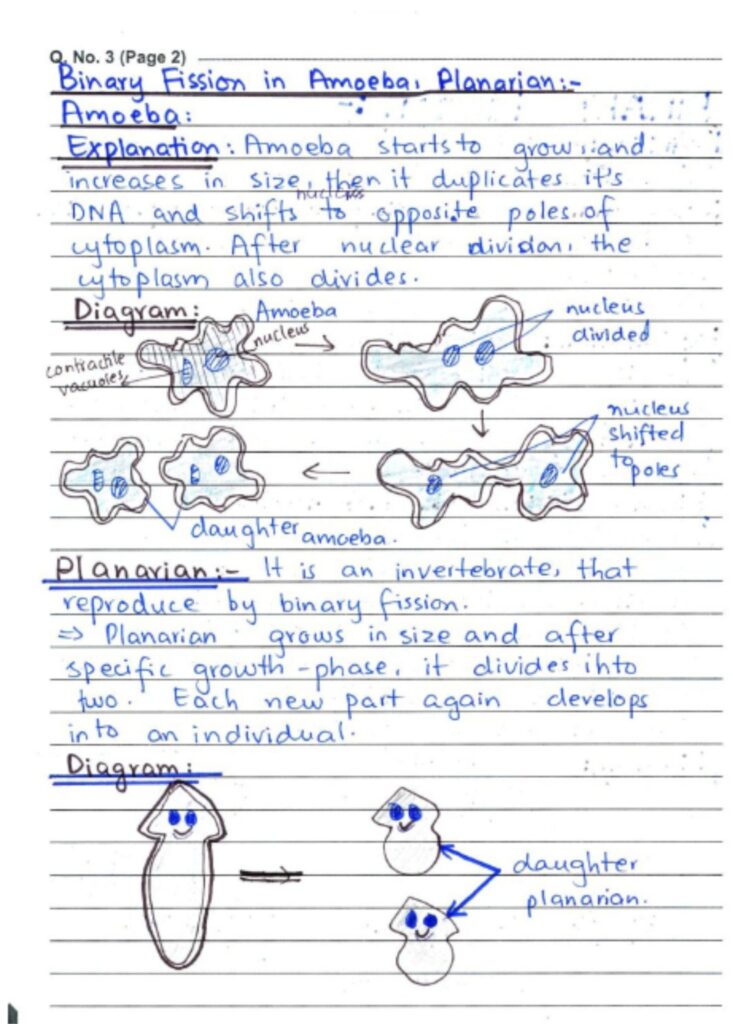 Q. No. 3 (Page 2)
Binary Fission in Amoeba, Planarian:-
Amoeba:
Explanation: Amoeba starts to grow, and
increases in size, then it duplicates it's
nucleus
DNA and shifts to opposite poles of
cytoplasm. After nuclear division, the
cytoplasm also divides.
Diagram:
Amoeba
nucleus
contractile
vacuoles
nucleus
divided
nucleus
shifted
to poles
daughter amoeba.
Planarian:- It is an invertebrate, that
reproduce by binary fission.
⇒ Planarian grows in size and after
specific growth-phase, it divides into
two. Each new part again develops
into an individual.
Diagram:
daughter
planarian.